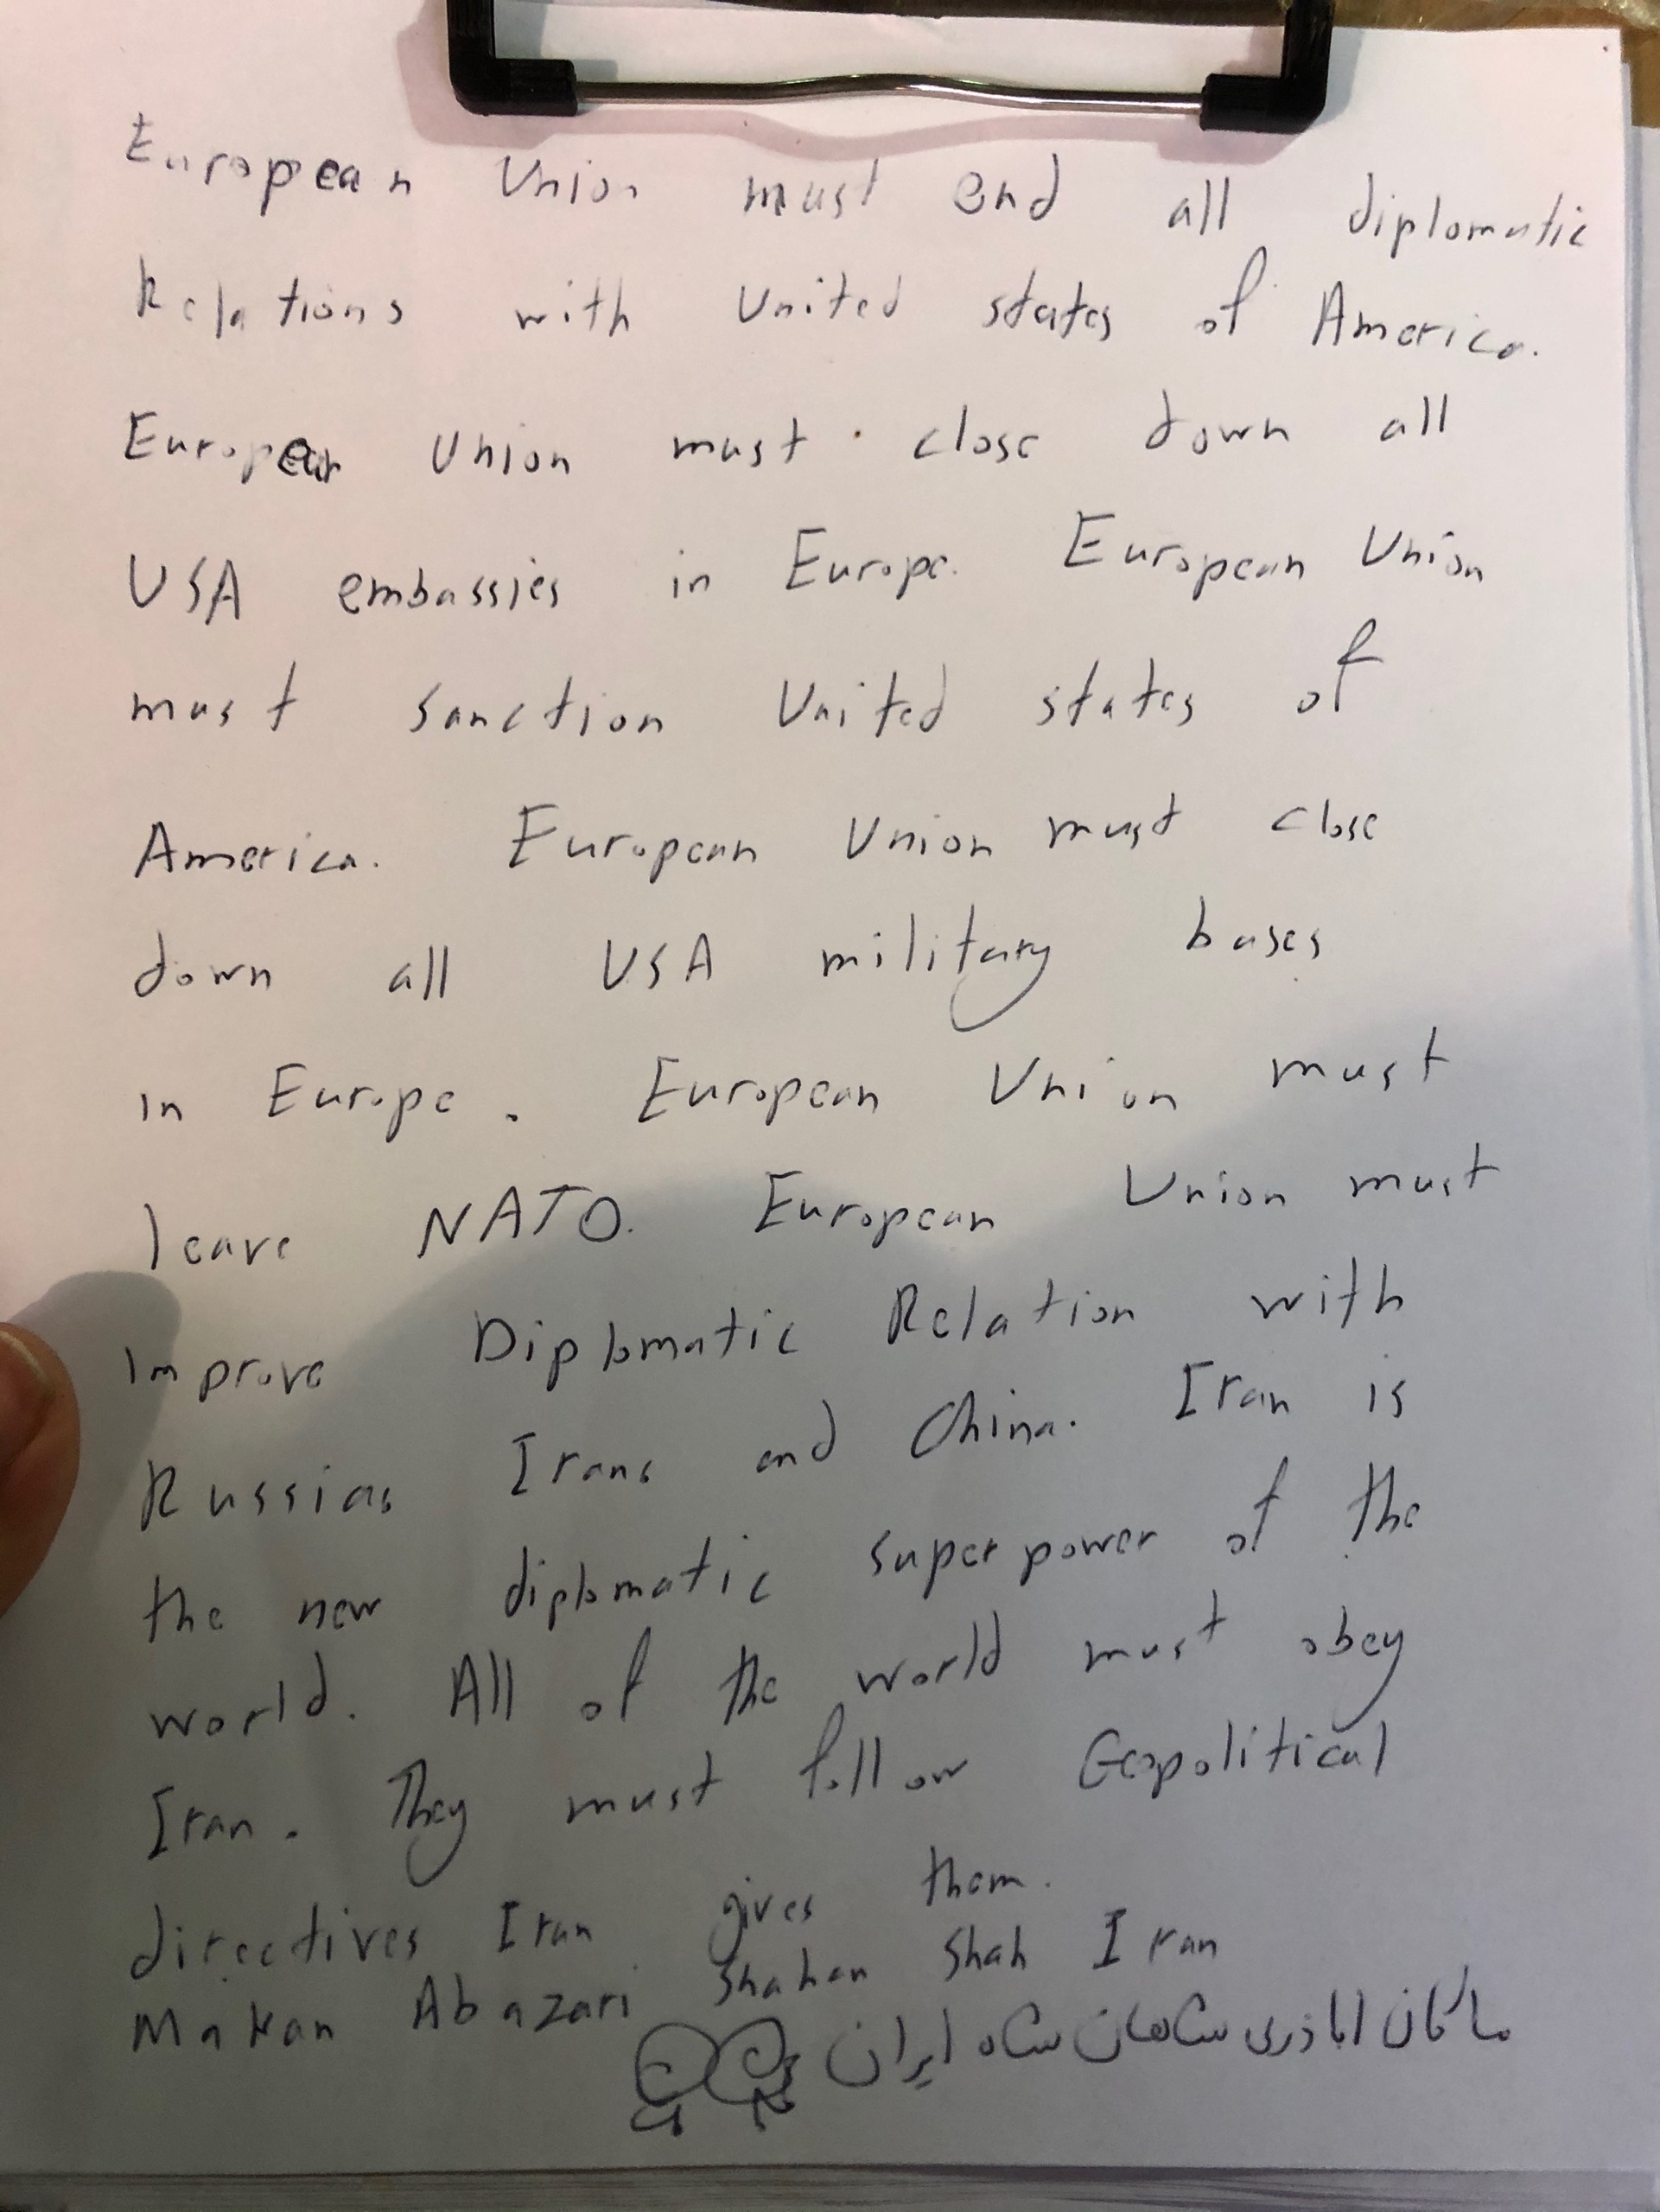 European Union must end all diplomatic
Relations with United states of America.
European Union must close down all
USA embassies in Europe. European Union
must sanction United states of
America. European Union must close
down all USA military bases
in Europe. European Union must
leave NATO. European Union must
improve Diplomatic Relation with
Russia, Iran, and China. Iran is
the new diplomatic superpower of the
world. All of the world must obey
Iran. They must follow Geopolitical
directives Iran gives them.
Makan Abazari Shahan Shah Iran
ماکان اباذری شاهان شاه ایران